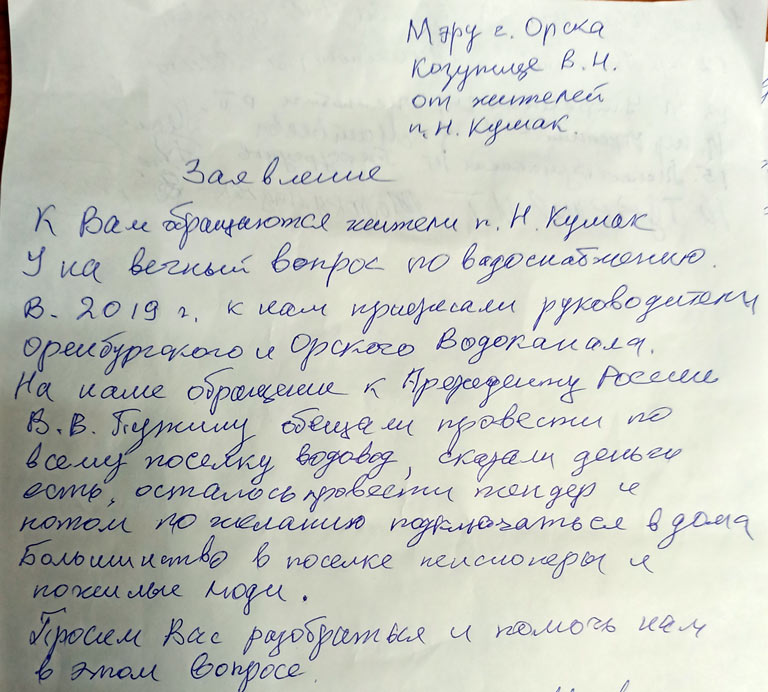 Мэру г. Орска
Козупице В.Н.
от жителей
п. Н. Кумак
Заявление
К Вам обращаются жители п. Н. Кумак
У на вечный вопрос по водоснабжению.
В. 2019 г. к нам приезжали руководители
Оренбургского и Орского Водоканала.
На наше обращение к Президенту России
В.В. Путину обещали провести по
всему поселку водовод, сказали деньги
есть, осталось провести тендер и
потом по желанию подключаться в дома
Большинство в поселке пенсионеры и
пожилые люди.
Просим Вас разобраться и помочь нам
в этом вопросе.